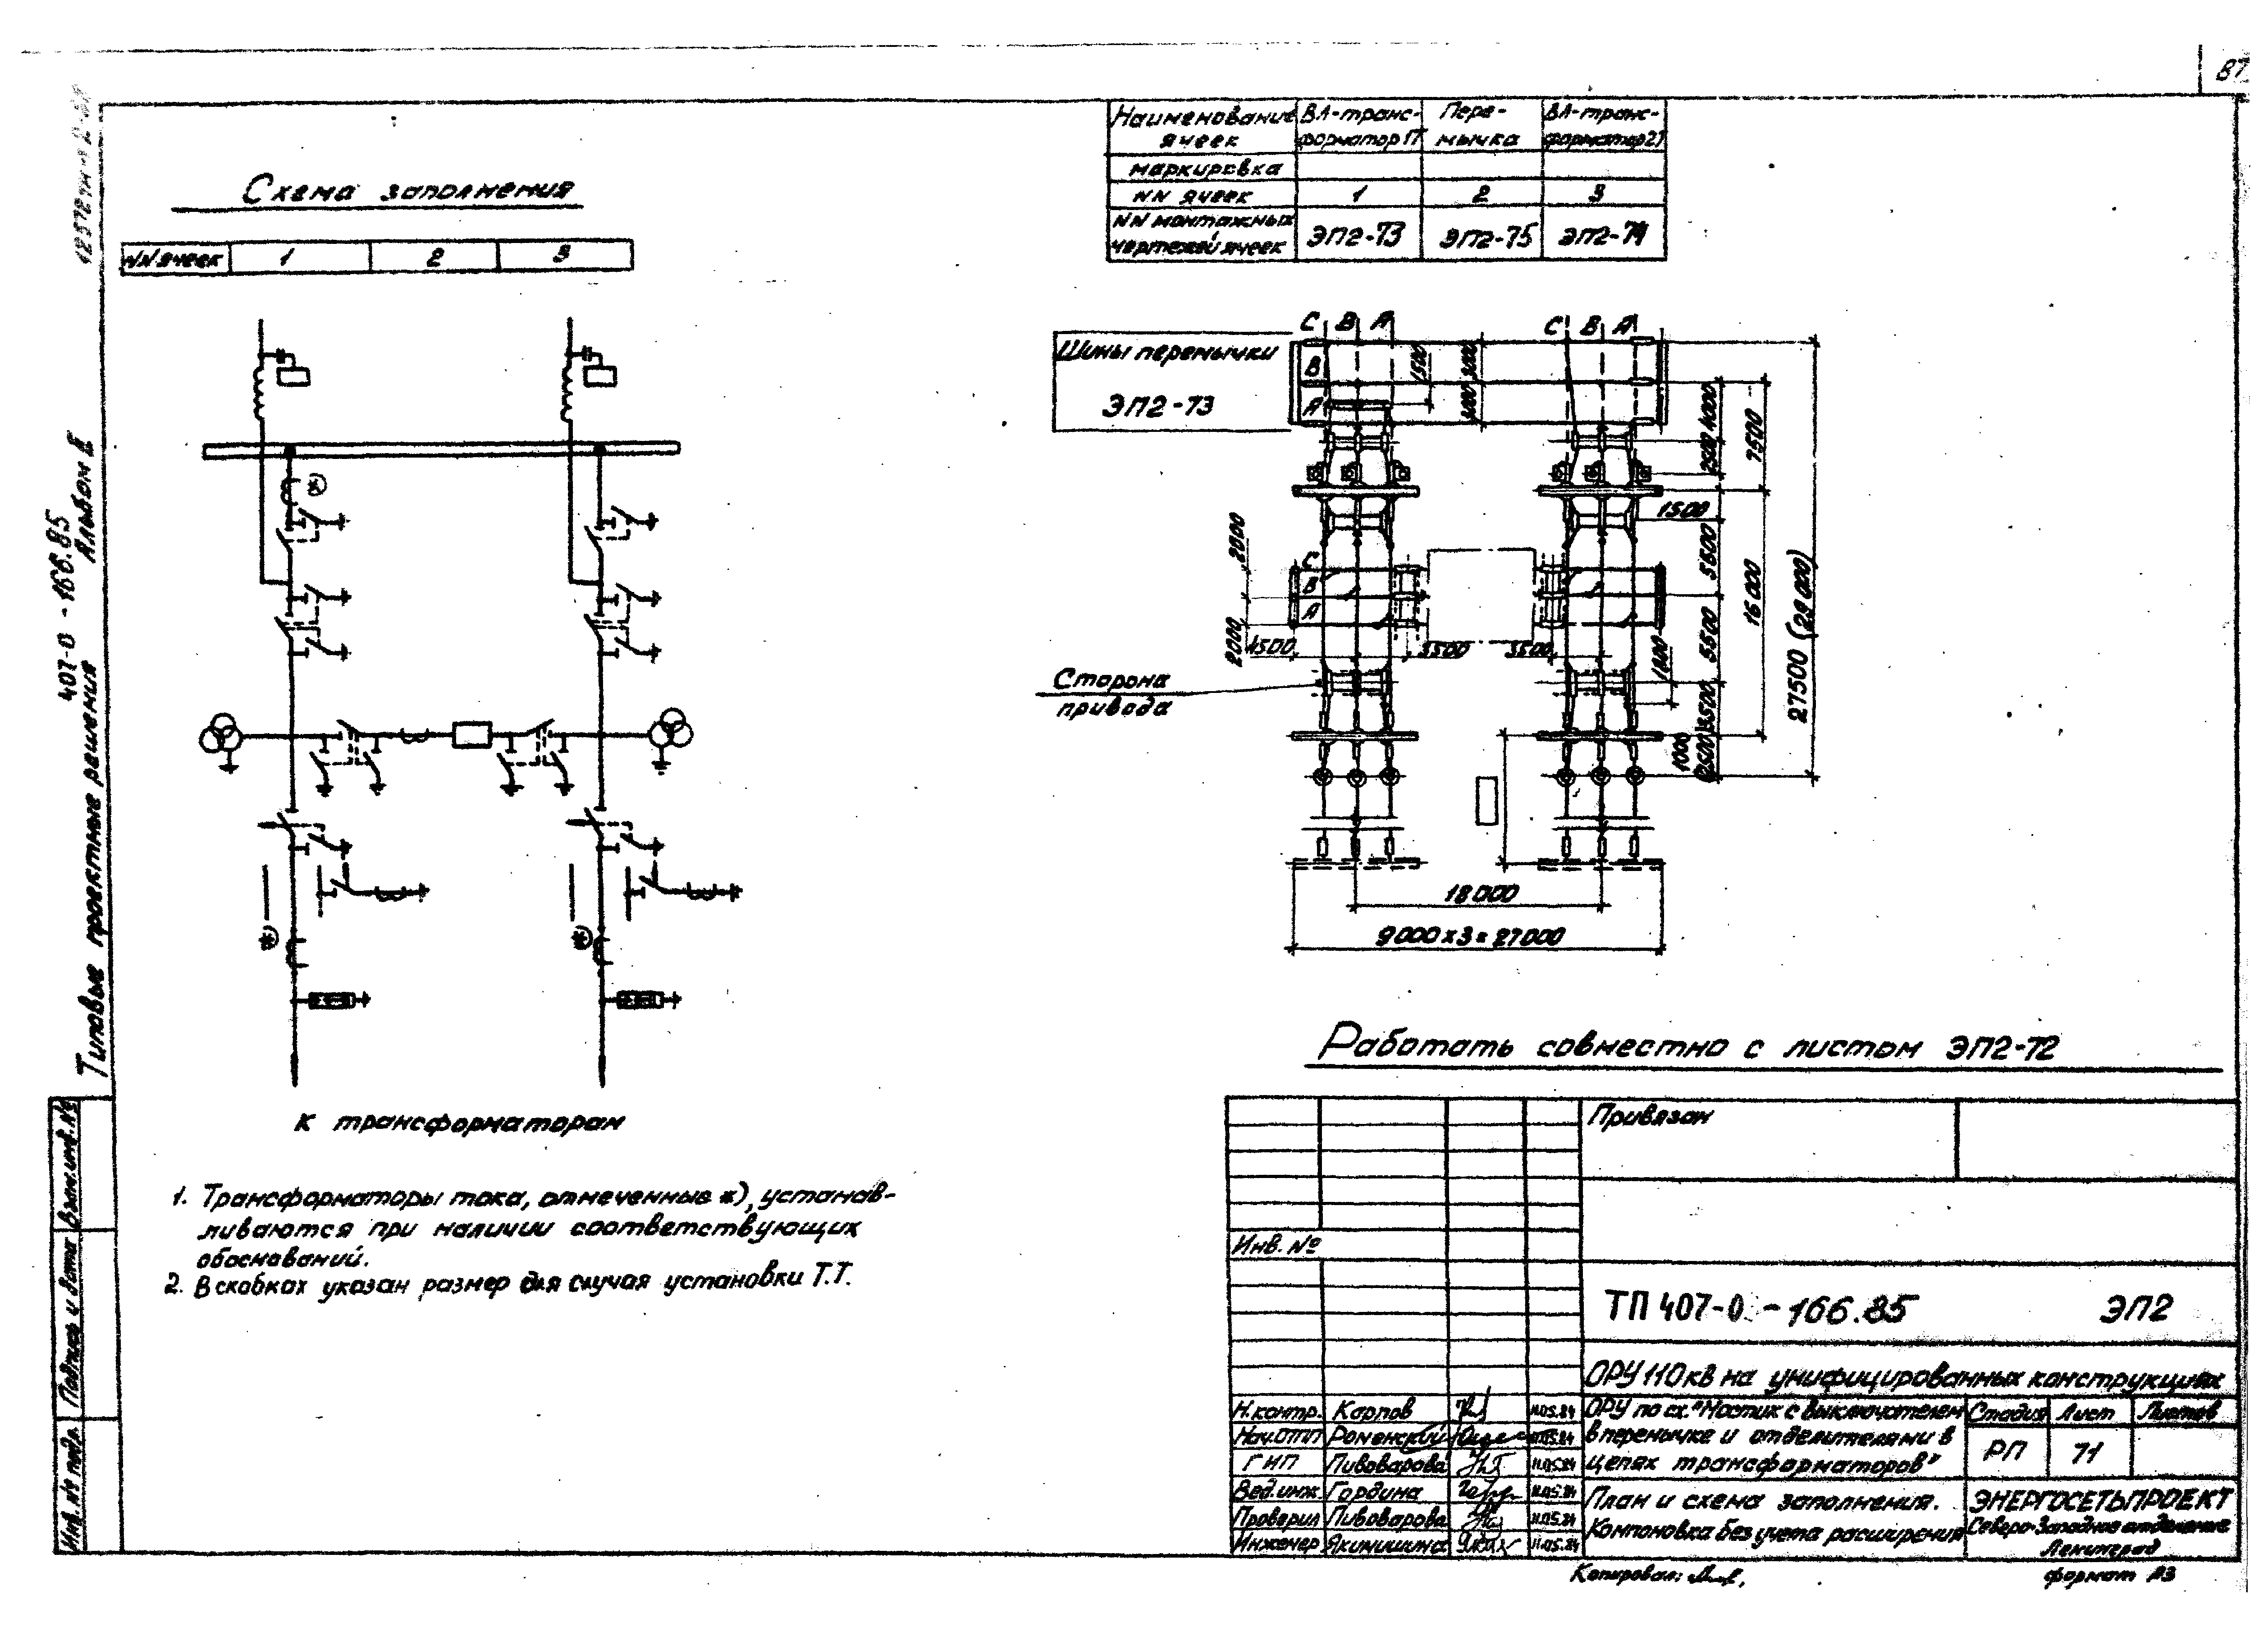 87
Наименование
ячеек
ВЛ-транс-
форматор 1Т
Пере-
мычка
ВЛ-транс-
форматор 2Т
маркировка
NN ячеек
1
2
3
NN монтажных
чертежей ячеек
ЭП2-73
ЭП2-75
ЭП2-74
Схема заполнения
NN ячеек
1
2
3
*)
*)
*)
К трансформаторам
Шины перемычки
ЭП2-73
С В А
С В А
В
А
1500
3000
3000
4000
2500
7500
1500
5500
16000
5500
27500 (29000)
С
В
А
2000
2000
4500
3500
3500
1800
3500
1000
(2500)
Сторона
привода
18000
9000 х 3 = 27000
1. Трансформаторы тока, отмеченные *), устанав-
ливаются при наличии соответствующих
обоснований.
2. В скобках указан размер для случая установки Т.Т.
Работать совместно с листом ЭП2-72
Типовые проектные решения
407-0-166.85
Альбом II
Инв. № подл.
Подпись и дата
Взам. инв. №
Привязан
Инв. №
ТП 407-0-166.85 ЭП2
ОРУ 110 кВ на унифицированных конструкциях
Н.контр. Карпов 11.05.84
Нач.ОТП Роменский 11.05.84
ГИП Пивоварова 11.05.84
Вед.инж. Гордина 11.05.84
Проверил Пивоварова 11.05.84
Инженер Якимишина 11.05.84
ОРУ по сх. "Мостик с выключателем
в перемычке и отделителями в
цепях трансформаторов"
Стадия Лист Листов
РП 71
План и схема заполнения.
Компоновка без учета расширения
ЭНЕРГОСЕТЬПРОЕКТ
Северо-Западное отделение
Ленинград
Копировал:
формат А3